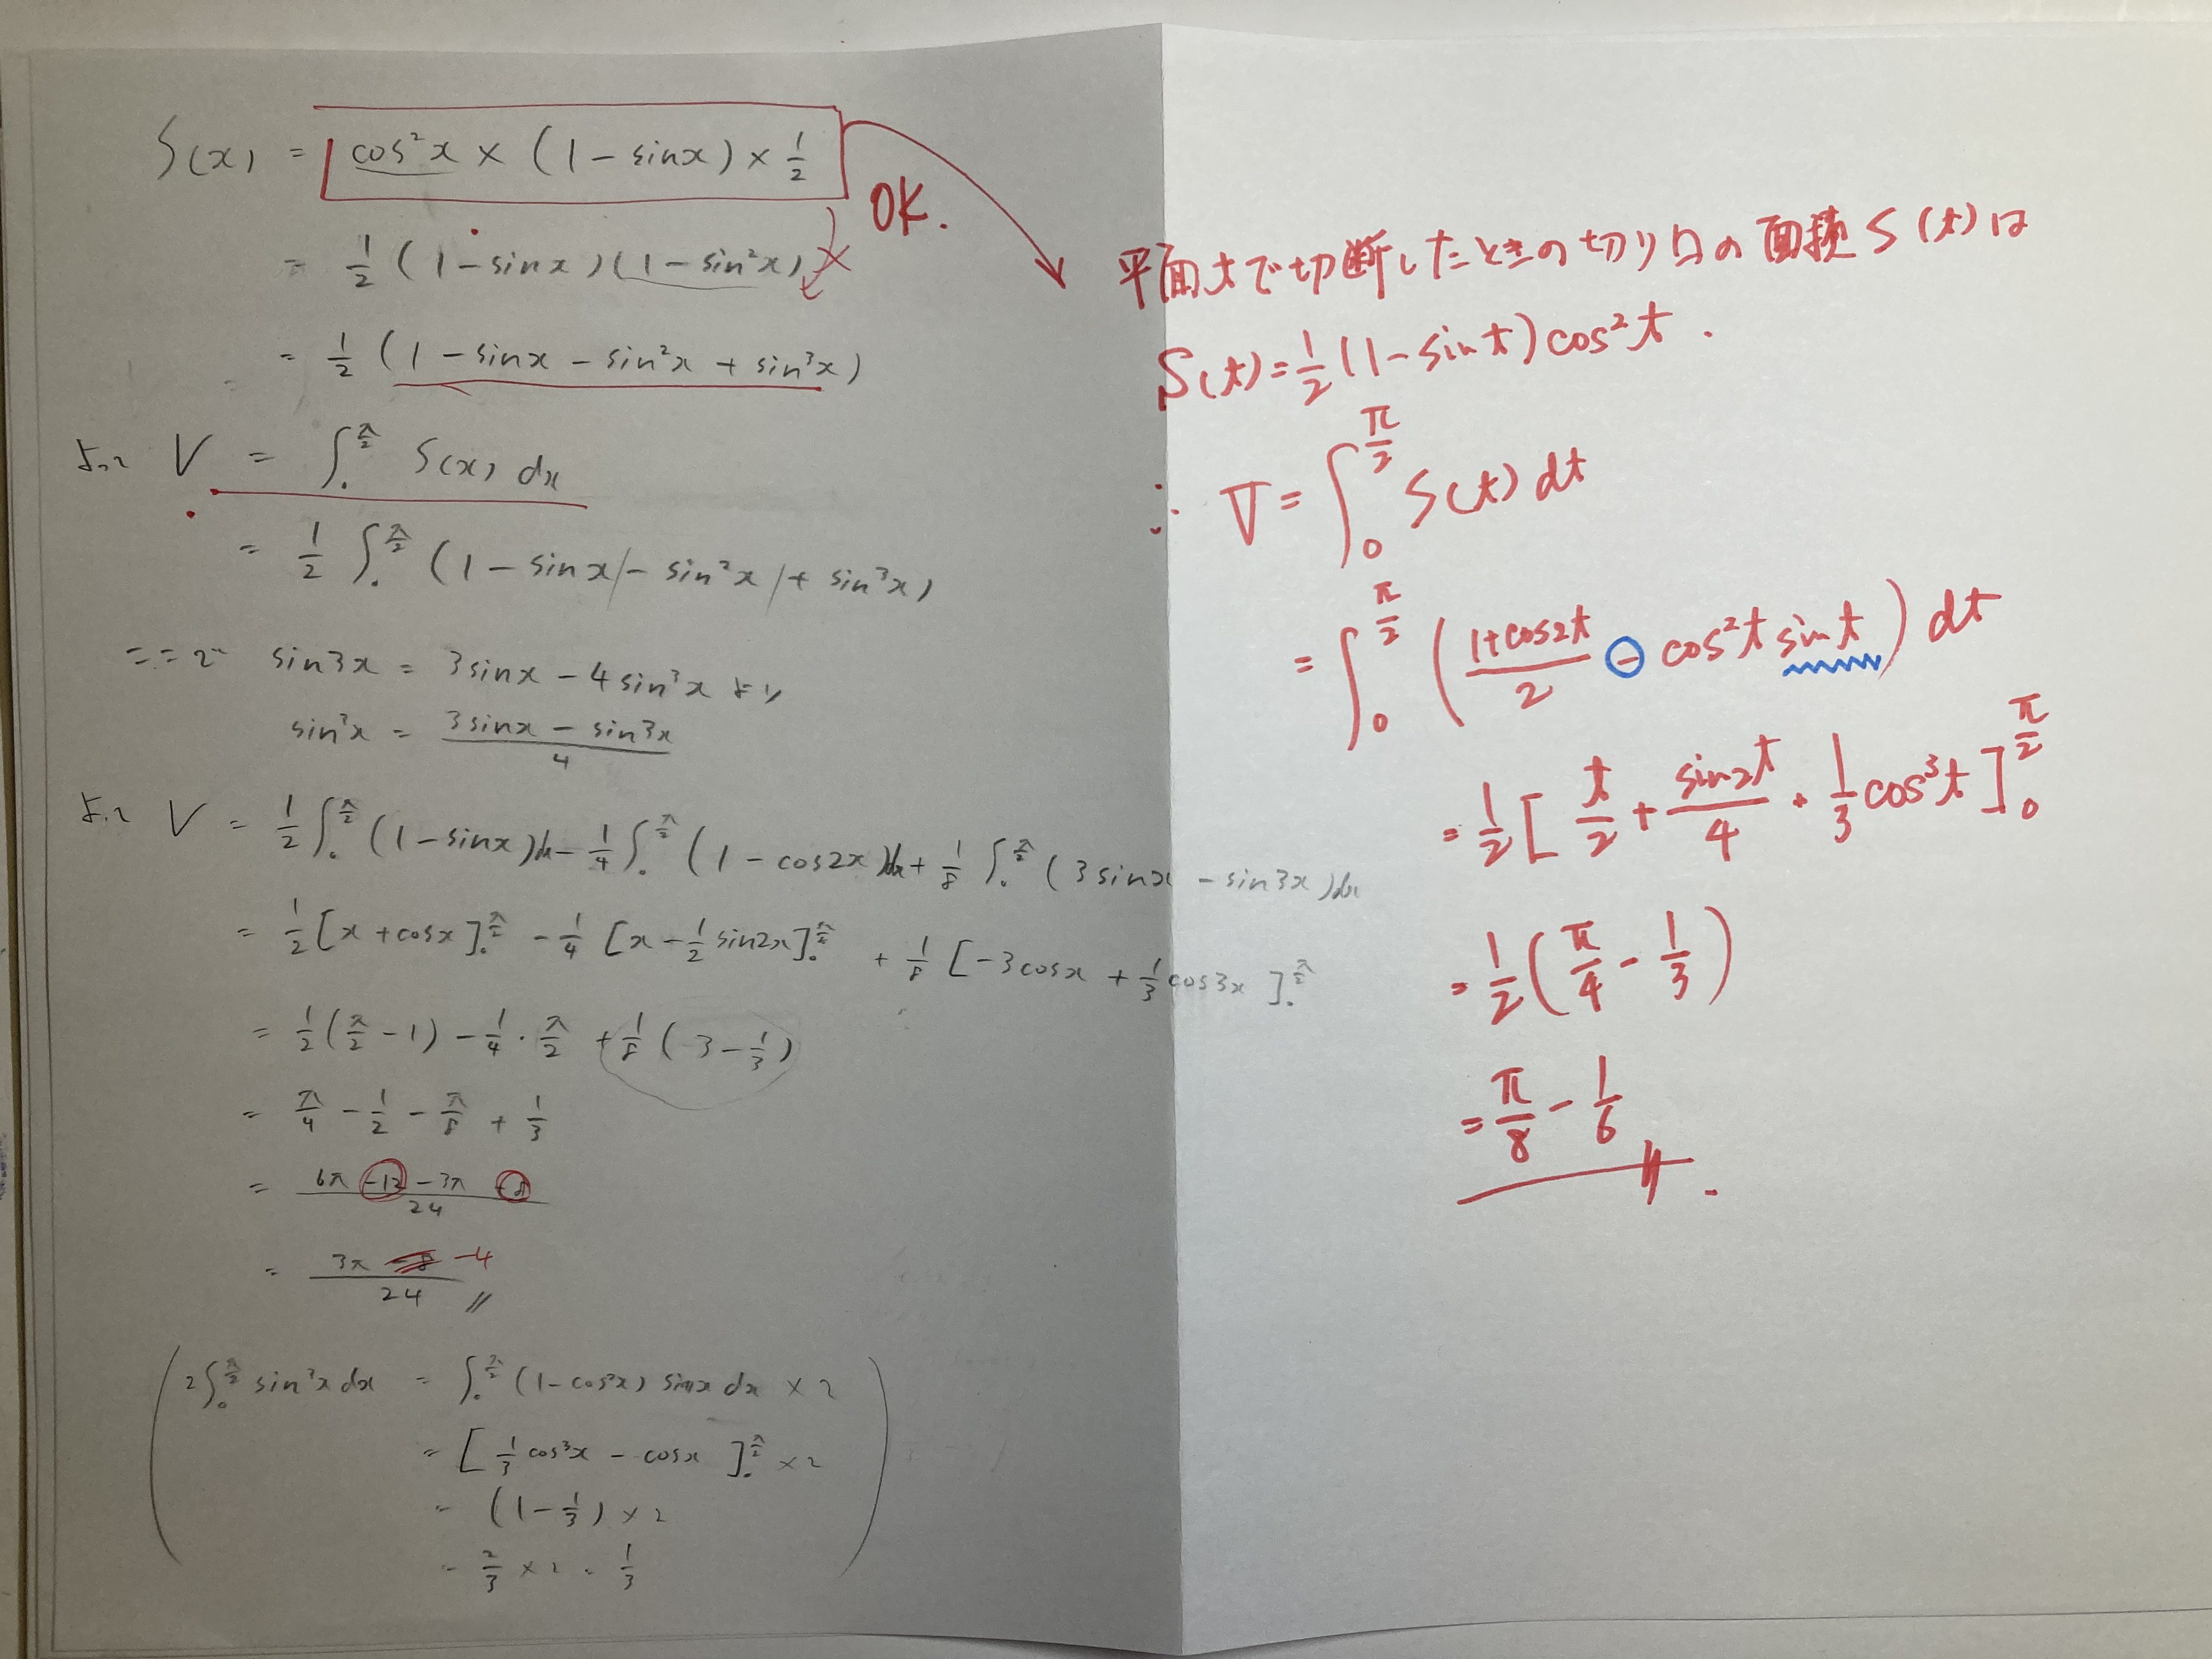 S(x) = cos²x × (1 − sinx) × 1/2
OK.
= 1/2 (1 − sinx)(1 − sin²x)
= 1/2 (1 − sinx − sin²x + sin³x)
よって V = ∫₀^{π/2} S(x) dx
= 1/2 ∫₀^{π/2} (1 − sinx − sin²x + sin³x)
ここで sin3x = 3sinx − 4sin³x より
sin³x = (3sinx − sin3x)/4
よって V = 1/2 ∫₀^{π/2} (1 − sinx)dx − 1/4 ∫₀^{π/2} (1 − cos2x)dx + 1/8 ∫₀^{π/2} (3sinx − sin3x)dx
= 1/2 [x + cosx]₀^{π/2} − 1/4 [x − 1/2 sin2x]₀^{π/2} + 1/8 [−3cosx + 1/3 cos3x]₀^{π/2}
= 1/2 (π/2 − 1) − 1/4 · π/2 + 1/8 (3 − 1/3)
= π/4 − 1/2 − π/8 + 1/3
= (6π −12 − 3π + 8)/24
= (3π −4)/24 //
( 2∫₀^{π/2} sin³x dx = ∫₀^{π/2} (1 − cos²x) sinx dx × 2
= [1/3 cos³x − cosx]₀^{π/2} × 2
= (1 − 1/3) × 2
= 2/3 × 2 = 1/3 )
平面tで切断したときの切り口の面積S(t)は
S(t) = 1/2 (1 − sin t) cos²t .
∴ V = ∫₀^{π/2} S(t) dt
= ∫₀^{π/2} ((1 + cos2t)/2 − cos²t sin t) dt
= 1/2 [t/2 + sin2t/4 + 1/3 cos³t]₀^{π/2}
= 1/2 (π/4 − 1/3)
= π/8 − 1/6 // .